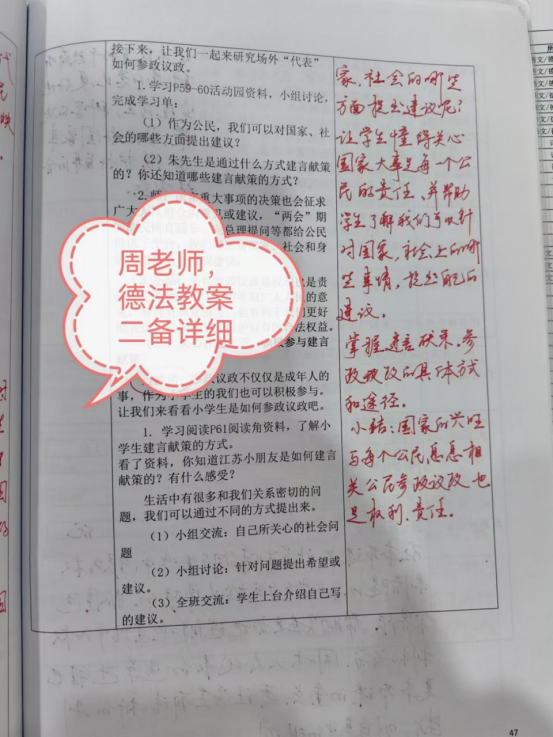 接下来，让我们一起来研究场外“代表”
如何参政议政。
1. 学习P59-60活动园资料，小组讨论，
完成学习单：
（1）作为公民，我们可以对国家、社
会的哪些方面提出建议？
（2）朱先生是通过什么方式建言献策
的？你还知道哪些建言献策的方式？
2. 师
重大事项的决策也会征求
广大
见或建议，“两会”期
总理提问等都给公民
社会和身
也是责
的意
国更好
法权益。
参与建言
议政不仅仅是成年人的
事，作为
生的我们也可以积极参与。
让我们来看看小学生是如何参政议政吧。
1. 学习阅读P61阅读角资料，了解小
学生建言献策的方式。
看了资料，你知道江苏小朋友是如何建言
献策的？有什么感受？
生活中有很多和我们关系密切的问
题，我们可以通过不同的方式提出来。
（1）小组交流：自己所关心的社会问
题
（2）小组讨论：针对问题提出希望或
建议。
（3）全班交流：学生上台介绍自己写
的建议。
家，社会的哪些
方面提出建议呢？
让学生懂得关心
国家大事是每一个公
民的责任、并帮助
学生了解我们可以针
对国家，社会上的哪
些事情，提出自己的
建议。
掌握建言献策，参
政议政的具体方式
和途径。
小结：国家的兴旺
与每个公民息息相
关公民参政议政也
是权利、责任。
周老师，
德法教案
二备详细
47